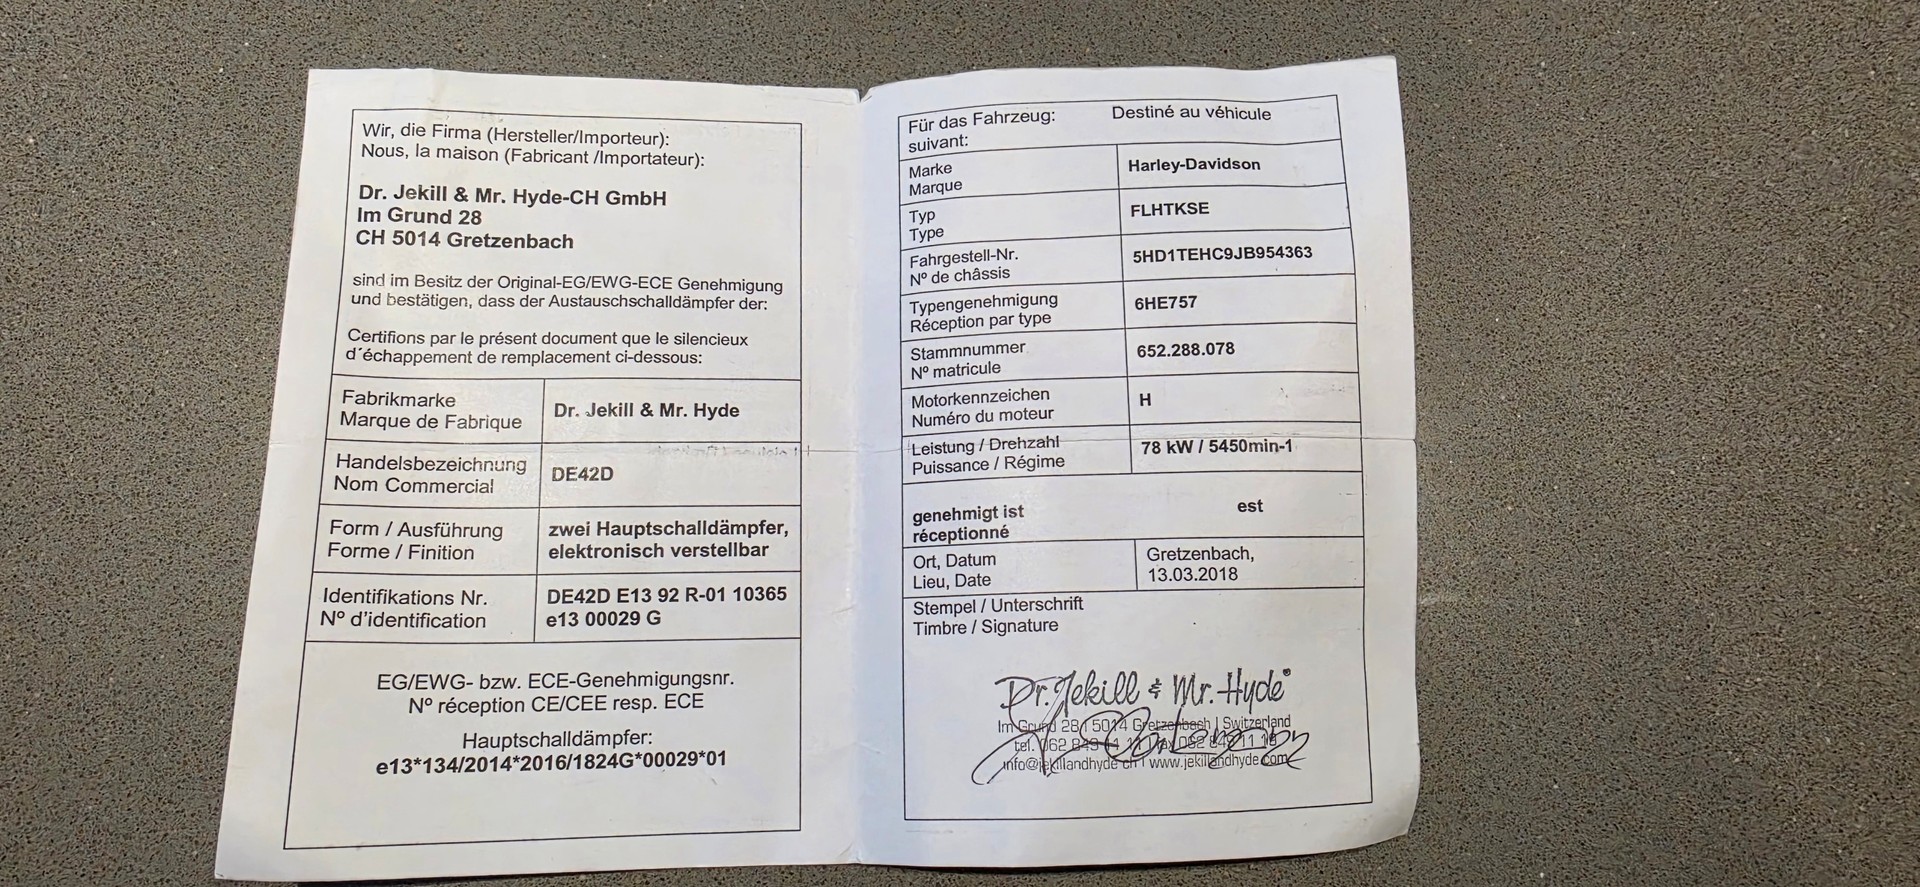 Wir, die Firma (Hersteller/Importeur):
Nous, la maison (Fabricant /Importateur):
Dr. Jekill & Mr. Hyde-CH GmbH
Im Grund 28
CH 5014 Gretzenbach
sind im Besitz der Original-EG/EWG-ECE Genehmigung
und bestätigen, dass der Austauschschalldämpfer der:
Certifions par le présent document que le silencieux
d´échappement de remplacement ci-dessous:
Fabrikmarke
Marque de Fabrique
Dr. Jekill & Mr. Hyde
Handelsbezeichnung
Nom Commercial
DE42D
Form / Ausführung
Forme / Finition
zwei Hauptschalldämpfer,
elektronisch verstellbar
Identifikations Nr.
N° d'identification
DE42D E13 92 R-01 10365
e13 00029 G
EG/EWG- bzw. ECE-Genehmigungsnr.
N° réception CE/CEE resp. ECE
Hauptschalldämpfer:
e13*134/2014*2016/1824G*00029*01
Für das Fahrzeug: Destiné au véhicule
suivant:
Marke
Marque
Harley-Davidson
Typ
Type
FLHTKSE
Fahrgestell-Nr.
N° de châssis
5HD1TEHC9JB954363
Typengenehmigung
Réception par type
6HE757
Stammnummer
N° matricule
652.288.078
Motorkennzeichen
Numéro du moteur
H
Leistung / Drehzahl
Puissance / Régime
78 kW / 5450min-1
genehmigt ist est
réceptionné
Ort, Datum
Lieu, Date
Gretzenbach,
13.03.2018
Stempel / Unterschrift
Timbre / Signature
Dr. Jekill & Mr. Hyde
Im Grund 28 | 5014 Gretzenbach | Switzerland
tel. 062 849 11 fax 062 849 11
info@jekillandhyde.ch | www.jekillandhyde.com